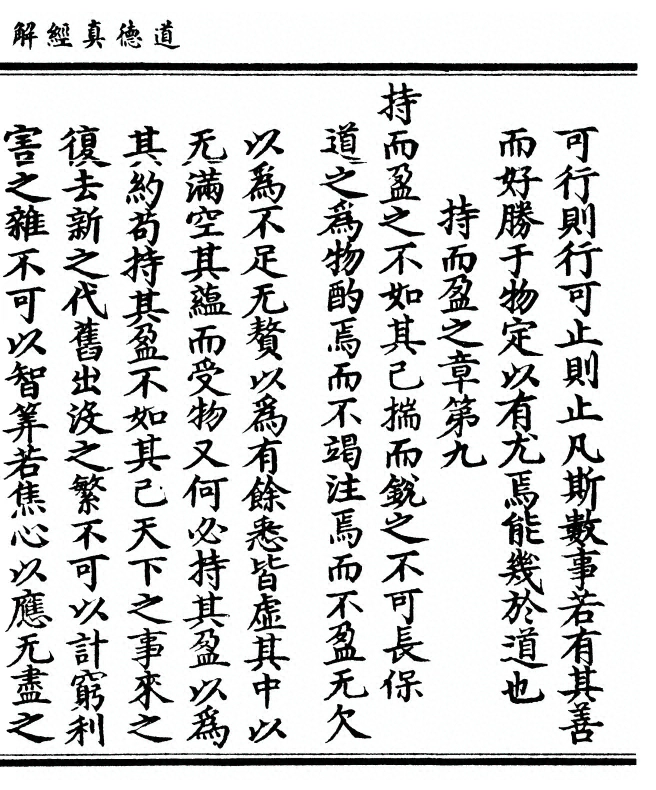 道德真經解
可行則行可止則止凡斯數事若有其善
而好勝于物定以有尤焉能幾於道也
持而盈之章第九
持而盈之不如其己揣而銳之不可長保
道之爲物酌焉而不竭注焉而不盈无欠
以爲不足无贅以爲有餘悉皆虛其中以
无滿空其蘊而受物又何必持其盈以爲
其約苟持其盈不如其己天下之事來之
復去新之代舊出没之繁不可以計窮利
害之雜不可以智筭若焦心以應无盡之